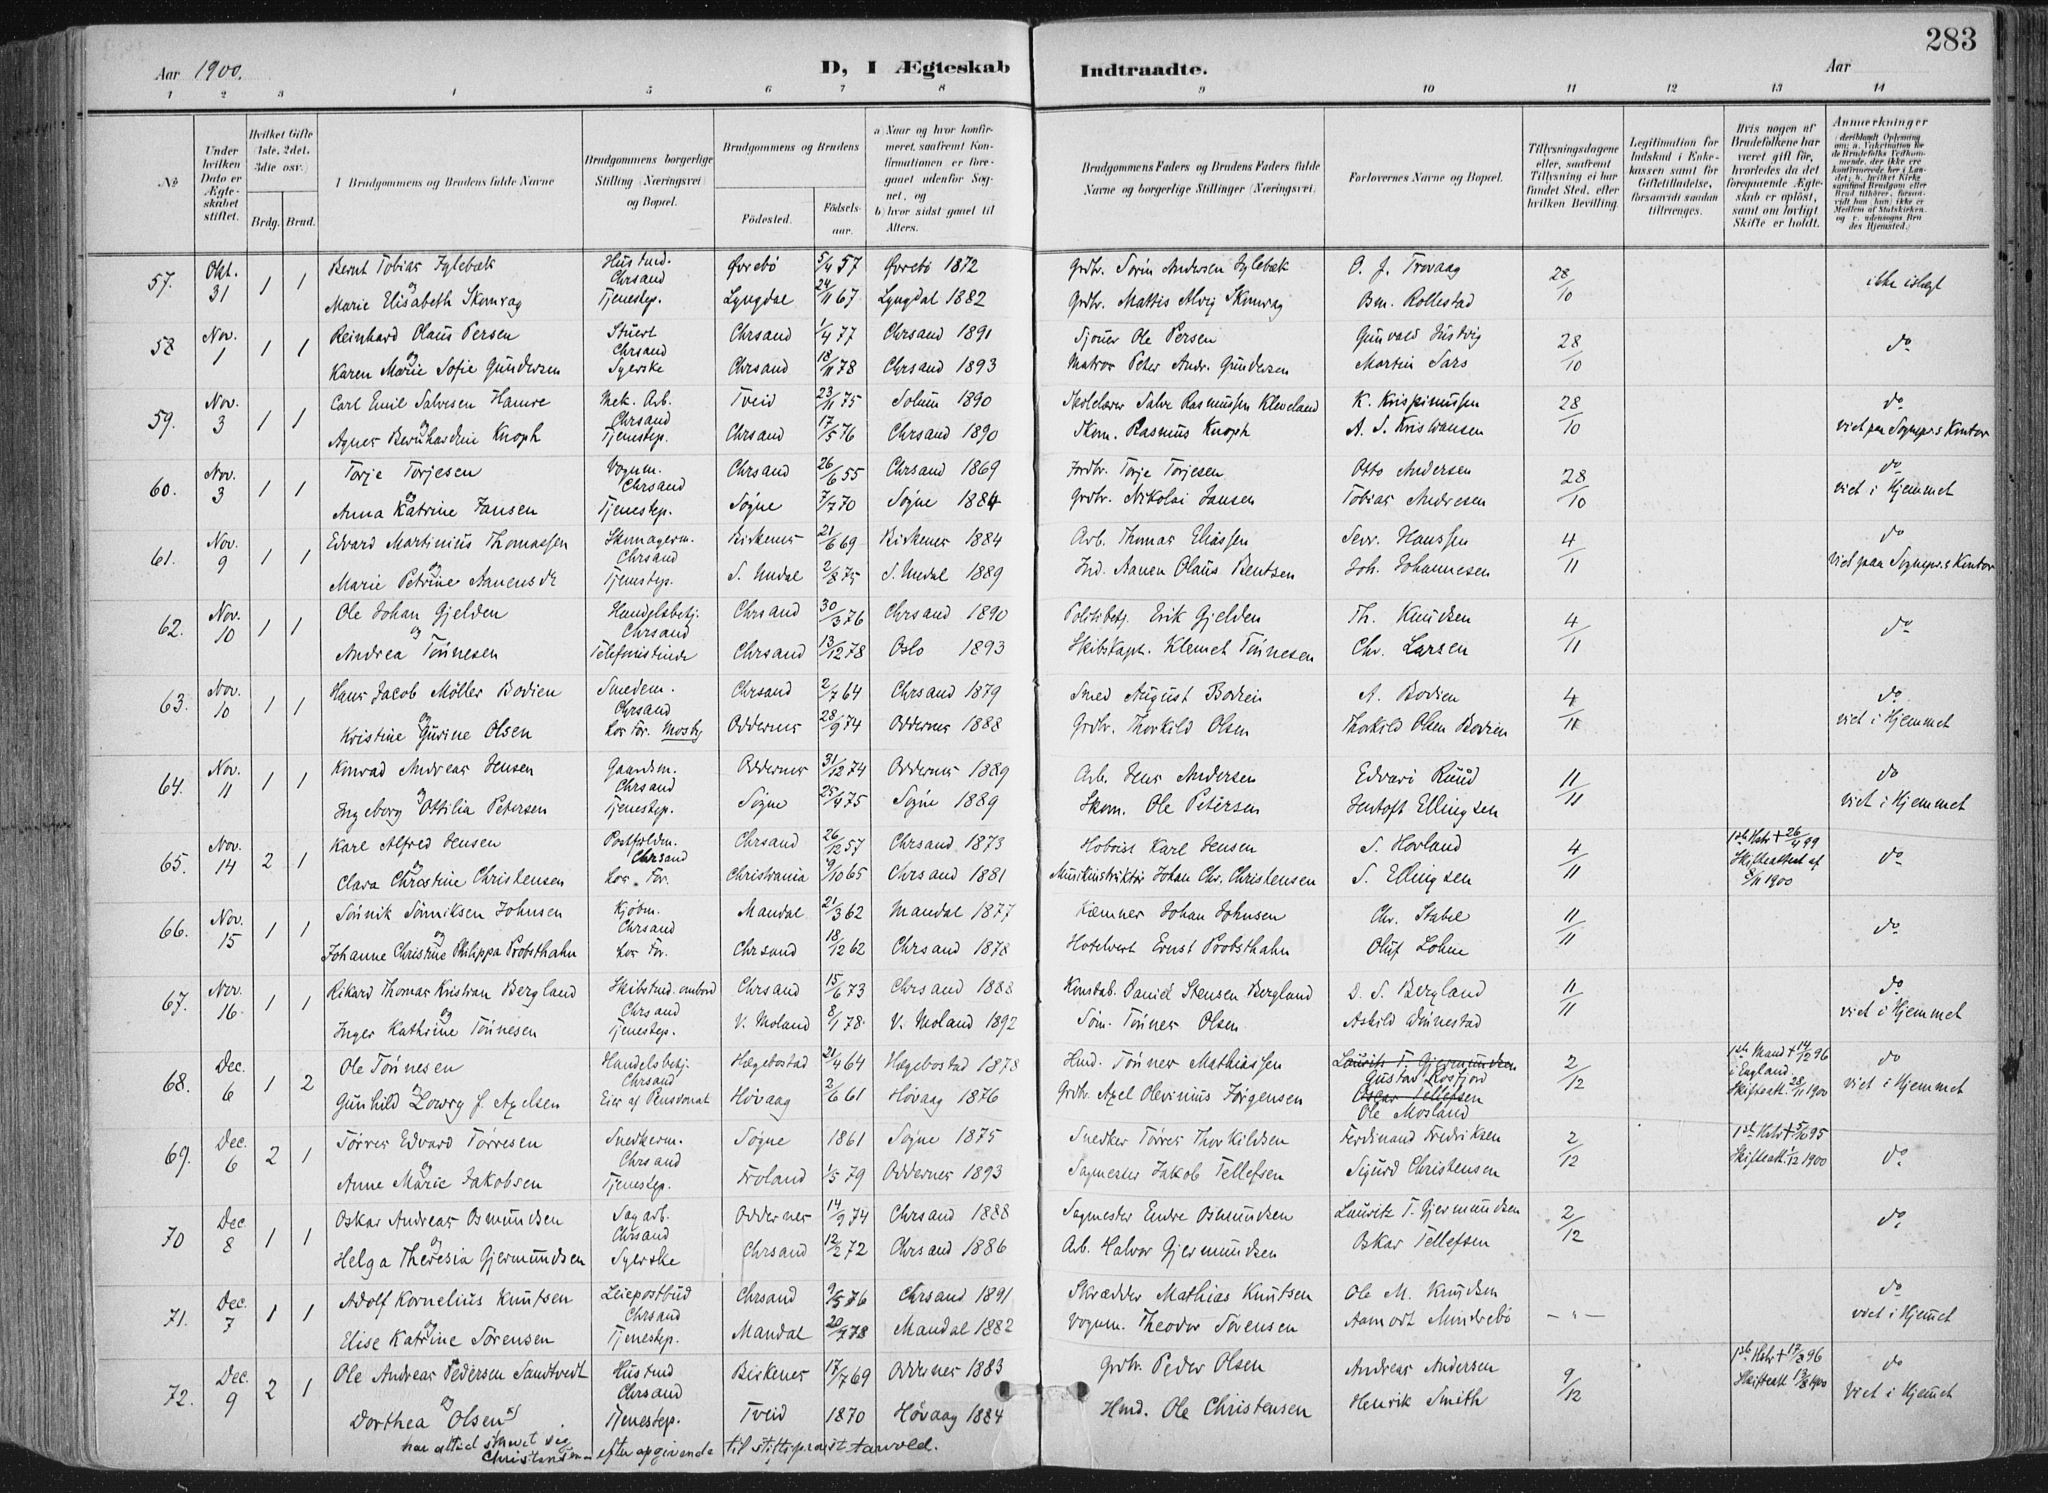 283
Aar 1900.
D, I Ægteskab
Indtraadte.
Aar
1 2 3 4 5 6 7 8 9 10 11 12 13 14
No
Under hvilken Dato er Ægteskabet stiftet.
Hvilket Gifte (1ste, 2det, 3die osv.)
Brdg. Brud.
Brudgommens og Brudens fulde Navne
Brudgommens borgerlige Stilling (Næringsvei) og Bopæl.
Brudgommens og Brudens
Fødested.
Fødselsaar.
a) Naar og hvor konfirmeret, saafremt Konfirmationen er foregaaet udenfor Sognet, og
b) hvor sidst gaaet til Alters.
Brudgommens Faders og Brudens Faders fulde Navne og borgerlige Stillinger (Næringsvei).
Forlovernes Navne og Bopæl.
Tillysningsdagene eller, saafremt Tillysning ei har fundet Sted, efter hvilken Bevilling.
Legitimation for Indskud i Enkekassen samt for Giftetilladelse, forsaavidt saadan tiltrænges.
Hvis nogen af Brudefolkene har været gift før, hvorledes da det foregaaende Ægteskab er opløst, samt om lovligt Skifte er holdt.
Anmærkninger
57. Okt. 31 1 1 Bernt Tobias Iglebæk Husund. Chrsand Øvrebø 5/4 57 Øvrebø 1872 Grdbr. Sørin Andersen Iglebæk O. J. Trovaag 28/10 ikke islægt
og
Marie Elisabeth Skomrag Tjenestep. Lyngdal 24/11 67 Lyngdal 1882 Grdbr. Mattis Alvig Skomrag Bm. Rollestad
58 Nov. 1 1 1 Reinhard Olaus Persen Stuert Chrsand Chrsand 1/4 77 Chrsand 1891 Sjouer Ole Persen Gunvald Justvig 28/10 do
og
Karen Marie Sofie Gundersen Syerske Chrsand 18/11 78 Chrsand 1893 Matros Peter Andr. Gundersen Martin Sars
59. Nov. 3 1 1 Carl Emil Salvesen Hamre Mek. Arb. Chrsand Tveid 23/11 75 Solum 1890 Skolelærer Salve Rasmussen Kleveland K. Krispinussen 28/10 do
og
Agnes Bernhardine Knoph Tjenestep. Chrsand 17/5 76 Chrsand 1890 Skom. Rasmus Knoph A. S. Kristiansen viet paa Sognepr.s Kontor
60. Nov. 3 1 1 Torje Torjesen Vognm. Chrsand Chrsand 26/6 55 Chrsand 1869 Jordbr. Torje Torjesen Otto Andersen 28/10 do
og
Anna Katrine Jansen Tjenestep. Søgne 7/7 70 Søgne 1884 Grdbr. Nikolai Jansen Tobias Andresen viet i Hjemmet
61. Nov. 9 1 1 Edvard Martinius Thomassen Skomagerm. Chrsand Birkenes 21/6 69 Birkenes 1884 Arb. Thomas Eliassen Sevr. Hanssen 4/11 do
og
Marie Petrine Arnensde Tjenestep. S. Undal 2/8 75 S. Undal 1889 Ind. Aanen Olaus Bentsen Joh. Johannesen viet paa Sognepr.s Kontor
62. Nov. 10 1 1 Ole Johan Gjelden Handelsbetj. Chrsand Chrsand 30/3 76 Chrsand 1890 Politibetj. Erik Gjelden Th. Knudsen 4/11 do
og
Andrea Tønnesen Telefonistinde Chrsand 13/12 78 Oslo 1893 Skibskapt. Klemet Tønnesen Chr. Larsen
63. Nov. 10 1 1 Hans Jacob Møller Bodien Smedem. Chrsand Chrsand 2/7 64 Chrsand 1879 Smed August Bodien A. Bodien 4/11 do
og
Kristine Gurine Olsen hos For. Mosby Oddernes 28/9 74 Oddernes 1888 Grdbr. Thorkild Olsen Thorkild Olsen Bodien viet i Hjemmet
64. Nov. 11 1 1 Konrad Andreas Jensen Gaardsm. Chrsand Oddernes 31/12 74 Oddernes 1889 Arb. Jens Andersen Edvard Ruud 11/11 do
og
Ingeborg Ottilia Petersen Tjenestep. Søgne 25/4 75 Søgne 1889 Skom. Ole Petersen Jentoft Ellingsen viet i Hjemmet
65. Nov. 14 2 1 Karl Alfred Jensen Postfuldm. Chrsand Chrsand 26/12 57 Chrsand 1873 Hoboist Karl Jensen S. Hovland 4/11 1ste Hstr + 26/4 99 Skifteattest af 8/11 1900 do
og
Clara Christine Christensen hos For. Christiania 9/10 65 Chrsand 1881 Musikinstruktør Johan Chr. Christensen S. Ellingsen
66. Nov. 15 1 1 Sønnik Sønniksen Johnsen Kjøbm. Chrsand Mandal 21/3 62 Mandal 1877 Kæmner Johan Johnsen Chr. Stabel 11/11 do
og
Johanne Christine Philippa Probsthahn hos For. Chrsand 18/12 62 Chrsand 1878 Hotelvert Ernst Probsthahn Oluf Lohne
67. Nov. 16 1 1 Rikard Thomas Kristian Bergland Skibstud. ombord Chrsand Chrsand 15/6 73 Chrsand 1888 Konstab. Daniel Stensen Bergland D. S. Bergland 11/11 do
og
Inger Kathrine Tønnesen Tjenestep. V. Moland 8/1 78 V. Moland 1892 Søm. Tønnes Olsen Askild Dønnestad viet i Hjemmet
68. Dec. 6 1 2 Ole Tønnesen Handelsbetj. Chrsand Hægebostad 21/4 64 Hægebostad 1878 Hmd. Tønnes Mathiassen Lauritz T. Gjermundsen Gustav Rosfjord 2/12 1ste Mand + 14/12 96 i England. Skifteatt. 28/11 1900 do
og
Gunhild Lowry f. Axelsen Eier af Pensionat Høvaag 2/6 61 Høvaag 1876 Grdbr. Axel Olevinius Jørgensen Oscar Tellefsen Ole Mosland viet i Hjemmet
69. Dec. 6 2 1 Tørres Edvard Tørresen Snedkerm. Chrsand Søgne 1861 Søgne 1875 Snedker Tørres Thorkildsen Ferdinand Fredriksen 2/12 1ste Hstr + 5/10 95 Skifteatt. 1/12 1900 do
og
Anne Marie Jakobsen Tjenestep. Froland 1/5 79 Oddernes 1893 Sagmester Jakob Tellefsen Sigurd Christensen
70 Dec 8 1 1 Oskar Andreas Osmundsen Sagarb. Chrsand Oddernes 14/9 74 Chrsand 1888 Sagmester Endre Osmundsen Lauritz T. Gjermundsen 2/12 do
og
Helga Theresia Gjermundsen Syerske Chrsand 12/2 72 Chrsand 1886 Arb. Halvor Gjermundsen Oskar Tellefsen
71. Dec. 7 1 1 Adolf Kornelius Knutsen Leiepostbud Chrsand Chrsand 9/5 76 Chrsand 1891 Skrædder Mathias Knutsen Ole M. Knudsen — " — do
og
Elise Katrine Sørensen Tjenestep. Mandal 20/4 78 Mandal 1882 Vognm. Theodor Sørensen Aamodt Mindrebø viet i Hjemmet
72. Dec. 9 2 1 Ole Andreas Pedersen Sandtvedt Husund Chrsand Birkenes 17/7 69 Oddernes 1883 Grdbr. Peder Olsen Andreas Andersen 9/12 1ste Hstr + 17/8 96 do
og
Dorthea Olsen x) Tjenestep. Tveid 1870 Høvaag 1884 Hmd. Ole Christensen Henrik Smith Viet i Hjemmet
har altid skrevet sig Christensen efter opgivende til stiftsprovst